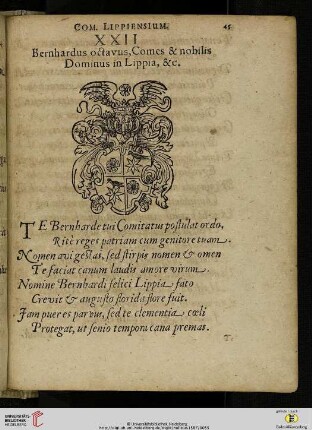 COM. LIPPIENSIUM. 45
XXII
Bernhardus octavus, Comes & nobilis
Dominus in Lippia, &c.
TE Bernharde tui Comitatus postulat ordo,
Ritè reges patriam cum genitore tuam.
Nomen avi gestas, sed stirpis nomen & omen
Te faciat canum laudis amore virum.
Nomine Bernhardi felici Lippia fato
Crevit & augusto florida flore fuit.
Jam puer es parvus, sed te clementia cœli
Protegat, ut senio tempora cana premas.
UNIVERSITÄTS-
BIBLIOTHEK
HEIDELBERG
© Universitätsbibliothek Heidelberg